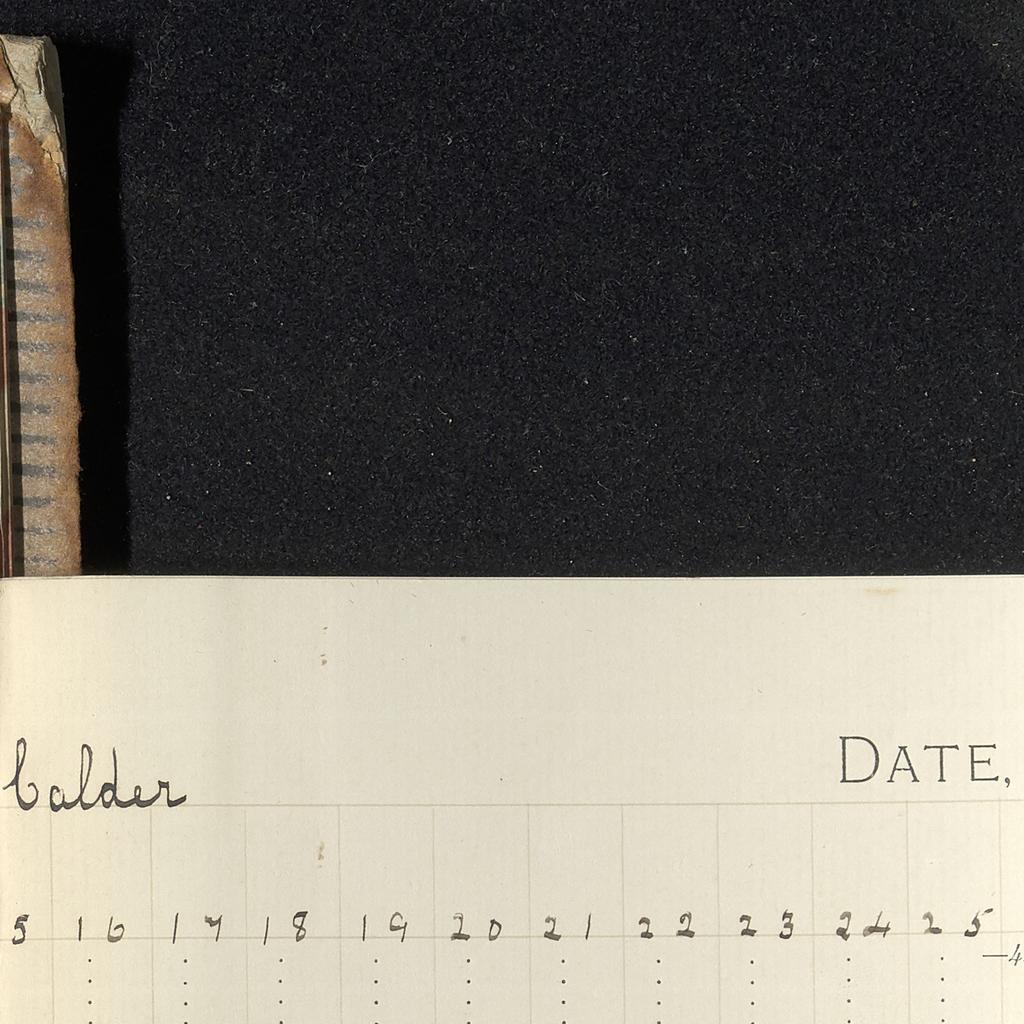 Calder DATE,
5 16 17 18 19 20 21 22 23 24 25
—4